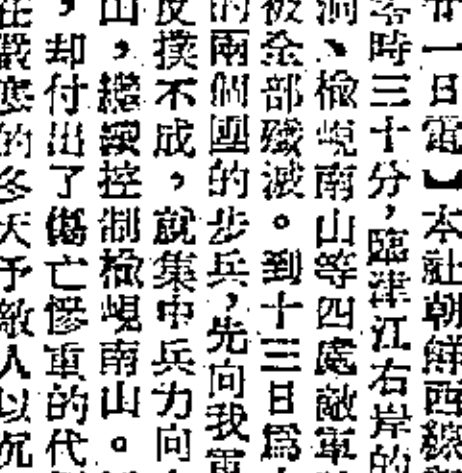 廿一日電】本社朝鮮西線
零時三十分，臨津江右岸的
洞、檢峴南山等四處敵軍
被全部殲滅。到十三日爲
的兩個團的步兵，先向我軍
反撲不成，就集中兵力向
山，繼續控制檢峴南山。
，却付出了傷亡慘重的代
在嚴寒的冬天予敵人以沉